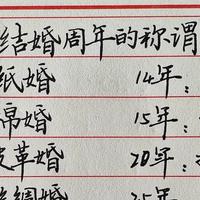 结婚周年的称谓
纸婚 14年:
帛婚 15年:
皮革婚 20年:
绸婚 25年